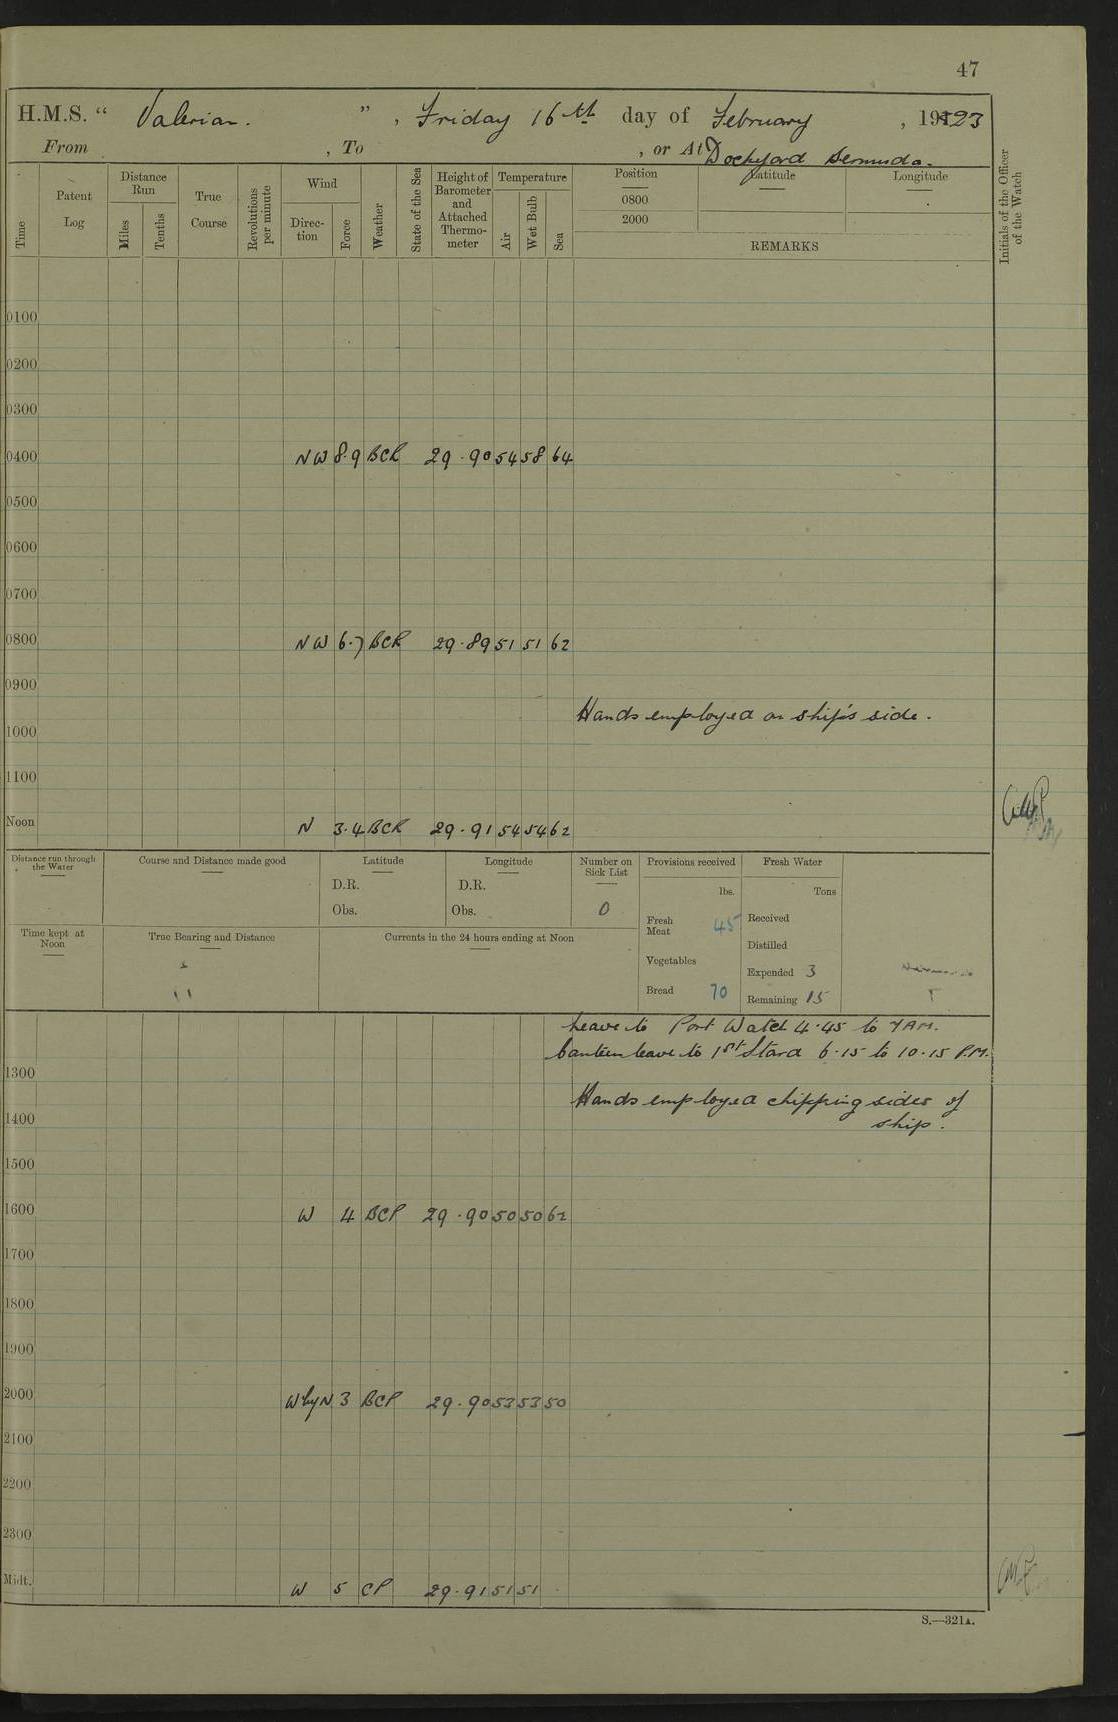 47
H.M.S. “ Valerian. ” , Friday 16th day of February , 1923
From , To , or At Dockyard Bermuda.
Time
Patent Log
Distance Run
Miles
Tenths
True Course
Revolutions per minute
Wind
Direction
Force
Weather
State of the Sea
Height of Barometer and Attached Thermometer
Temperature
Air
Wet Bulb
Sea
Position
0800
2000
Latitude
Longitude
REMARKS
Initials of the Officer of the Watch
0100
0200
0300
0400 NW 8.9 BCR 29.90 54 58 64
0500
0600
0700
0800 NW 6.7 BCR 29.89 51 51 62
0900
Hands employed on ship's side.
1000
1100
Noon N 3.4 BCR 29.91 54 54 62
Distance run through the Water
Course and Distance made good
Latitude
D.R.
Obs.
Longitude
D.R.
Obs.
Number on Sick List
0
Provisions received
lbs.
Fresh Meat 45
Vegetables
Bread 70
Fresh Water
Tons
Received
Distilled
Expended 3
Remaining 15
Time kept at Noon
True Bearing and Distance
Currents in the 24 hours ending at Noon
Leave to Port Watch 4.45 to 7 AM.
Canteen leave to 1st Stard 6.15 to 10.15 P.M.
1300
Hands employed chipping sides of
ship.
1400
1500
1600 W 4 BCP 29.90 50 50 62
1700
1800
1900
2000 W by N 3 BCP 29.90 53 53 50
2100
2200
2300
Midt. W 5 CP 29.91 51 51
S.—321A.